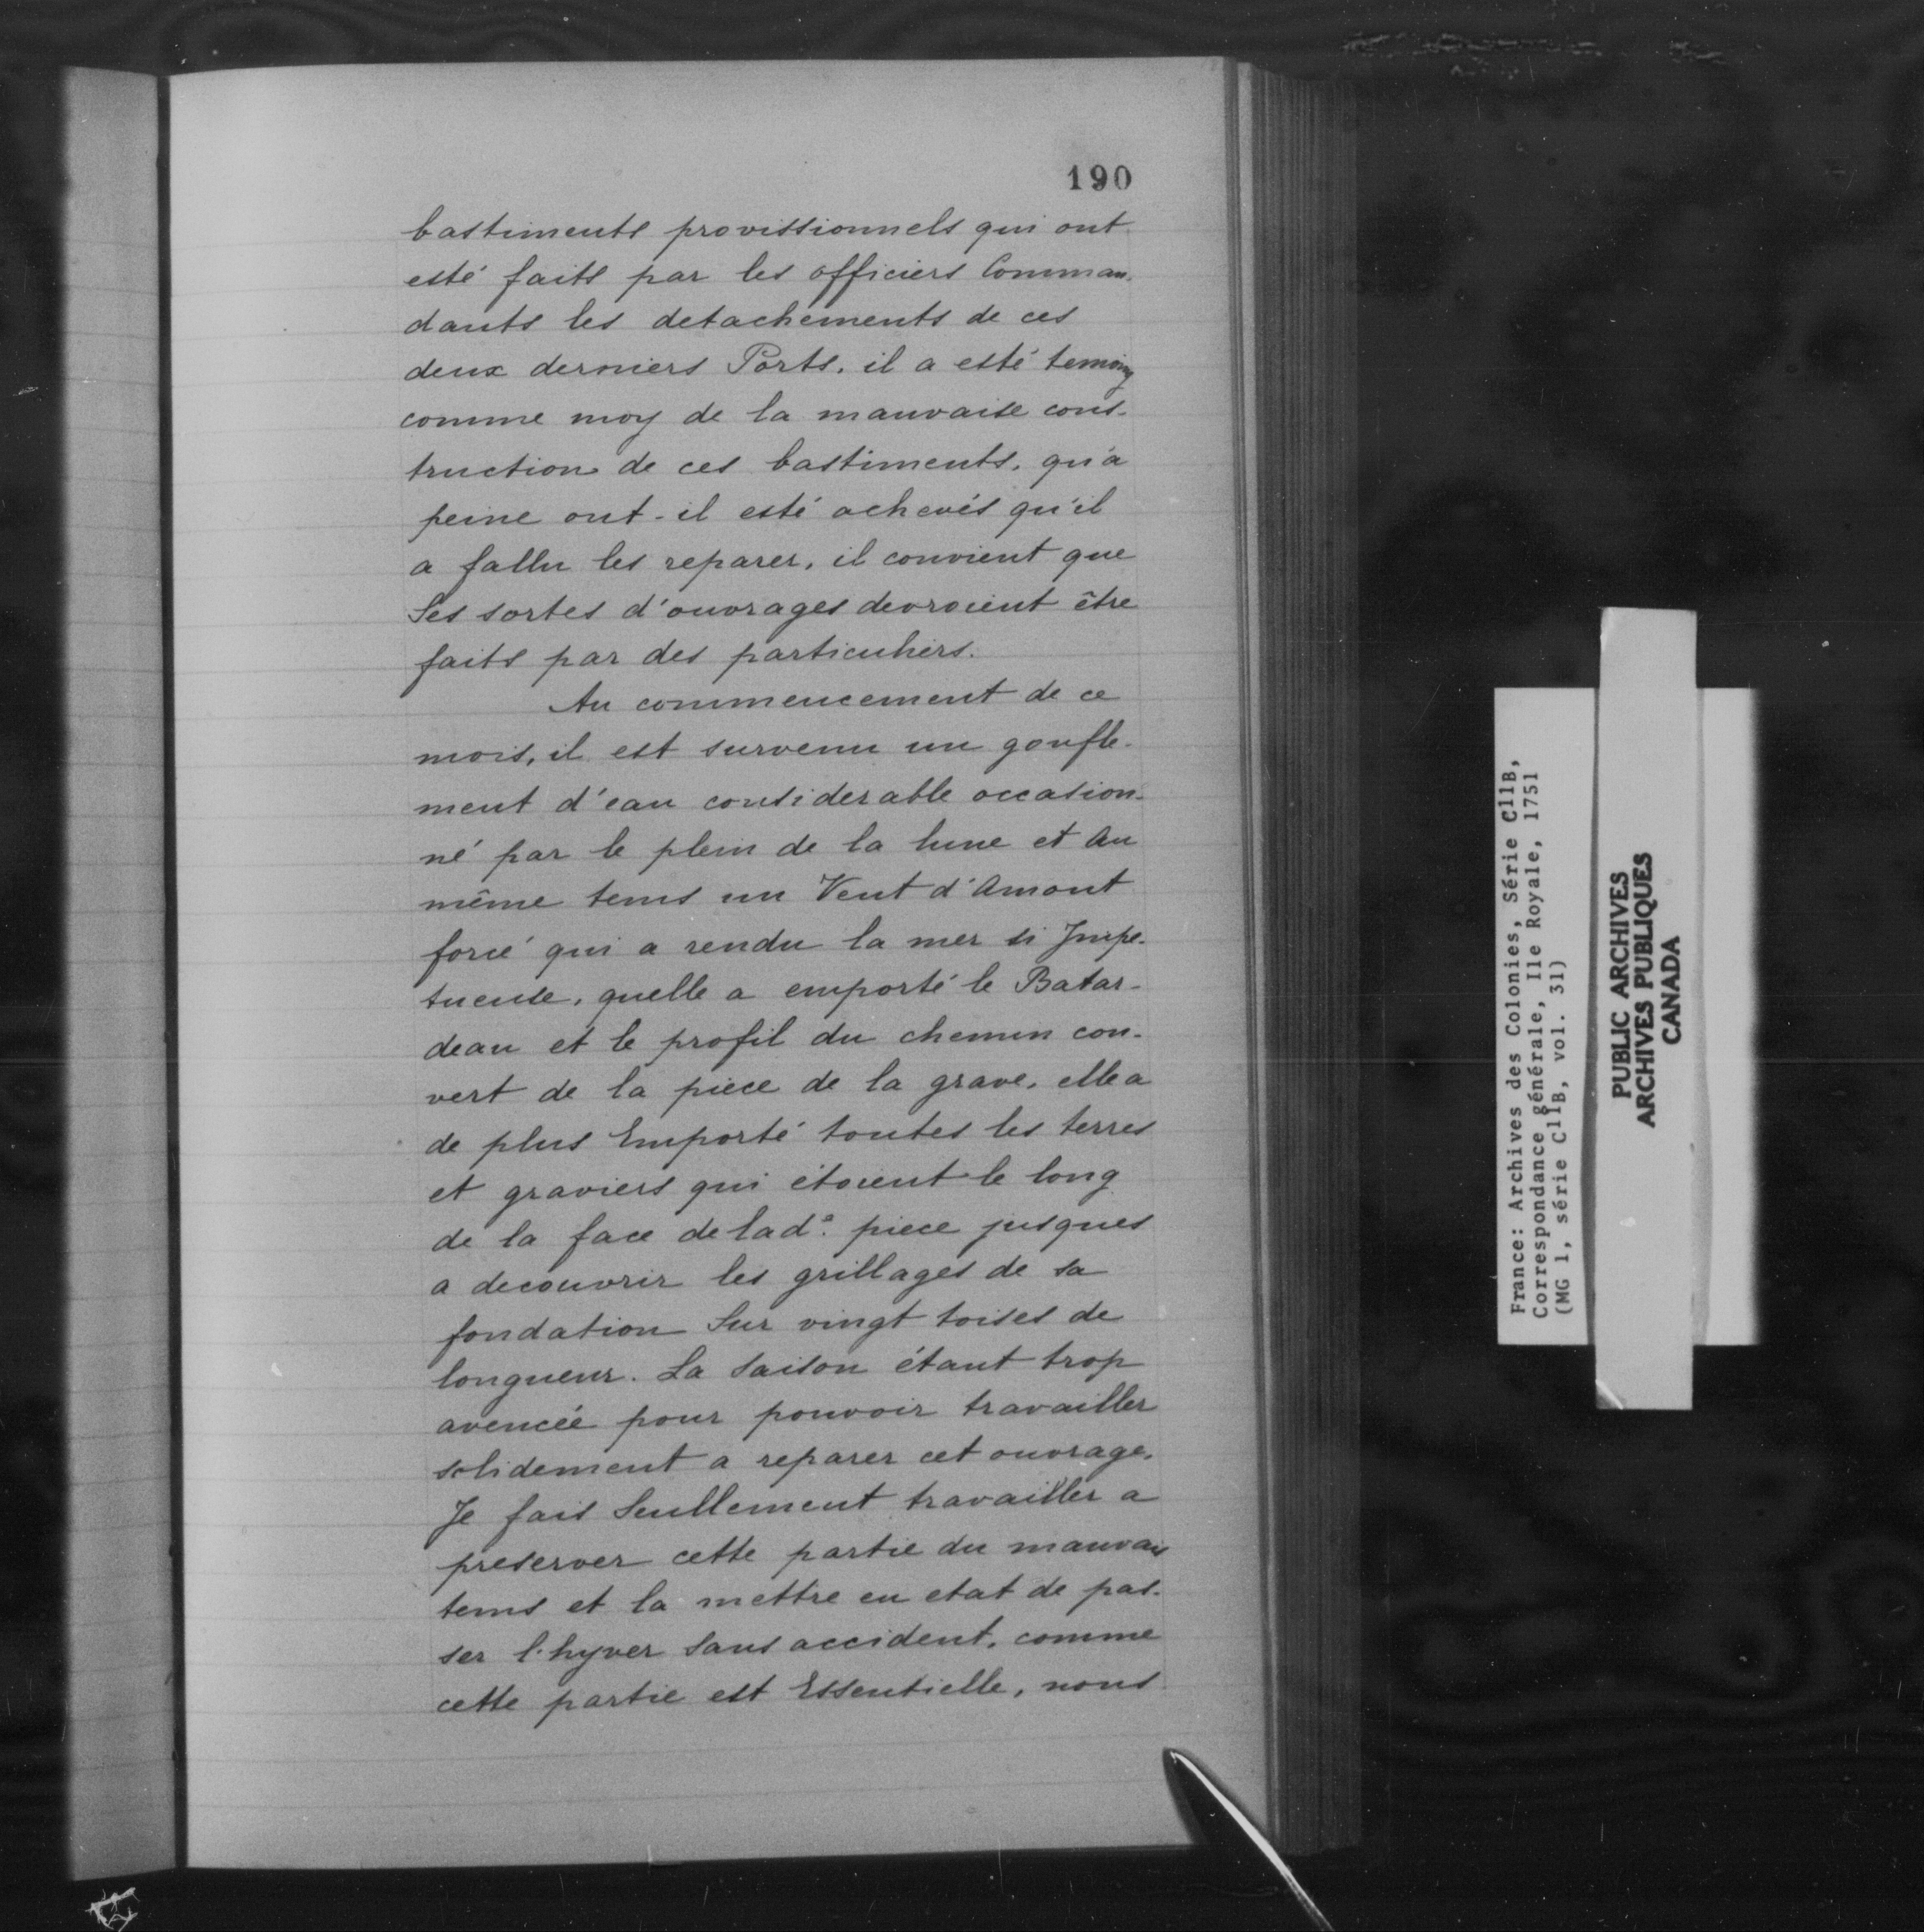 190
bastiments provissionnels qui ont
esté faits par les officiers Comman-
dants les detachements de ces
deux derniers Ports. il a esté temoing
comme moy de la mauvaise cons-
truction de ces bastiments, qu'a
peine ont-il esté achevés qu'il
a fallu les reparer, il convient que
Ses sortes d'ouvrages devroient être
faits par des particuliers.
Au commencement de ce
mois, il est survenu un goufle-
ment d'eau considerable occasion-
né par le plein de la lune et Au
même tems un Vent d'Amont
forcé qui a rendu la mer si Jmpe-
tueuse, quelle a emporté le Batar-
deau et le profil du chemin cou-
vert de la piece de la grave. elle a
de plus Emporté toutes les terres
et graviers qui étoient le long
de la face de lad.e piece jusques
a decouvrir les grillages de sa
fondation Sur vingt toises de
longueur. La Saison étant trop
avencée pour pouvoir travailler
solidement a reparer cet ouvrage.
Je fais Seullement travailler a
preserver cette partie du mauvais
tems et la mettre en etat de pas-
ser l'hyver Sans accident. comme
cette partie est Essentielle, nous
France: Archives des Colonies, Série C11B,
Correspondance générale, Ile Royale, 1751
(MG 1, série C11B, vol. 31)
PUBLIC ARCHIVES
ARCHIVES PUBLIQUES
CANADA